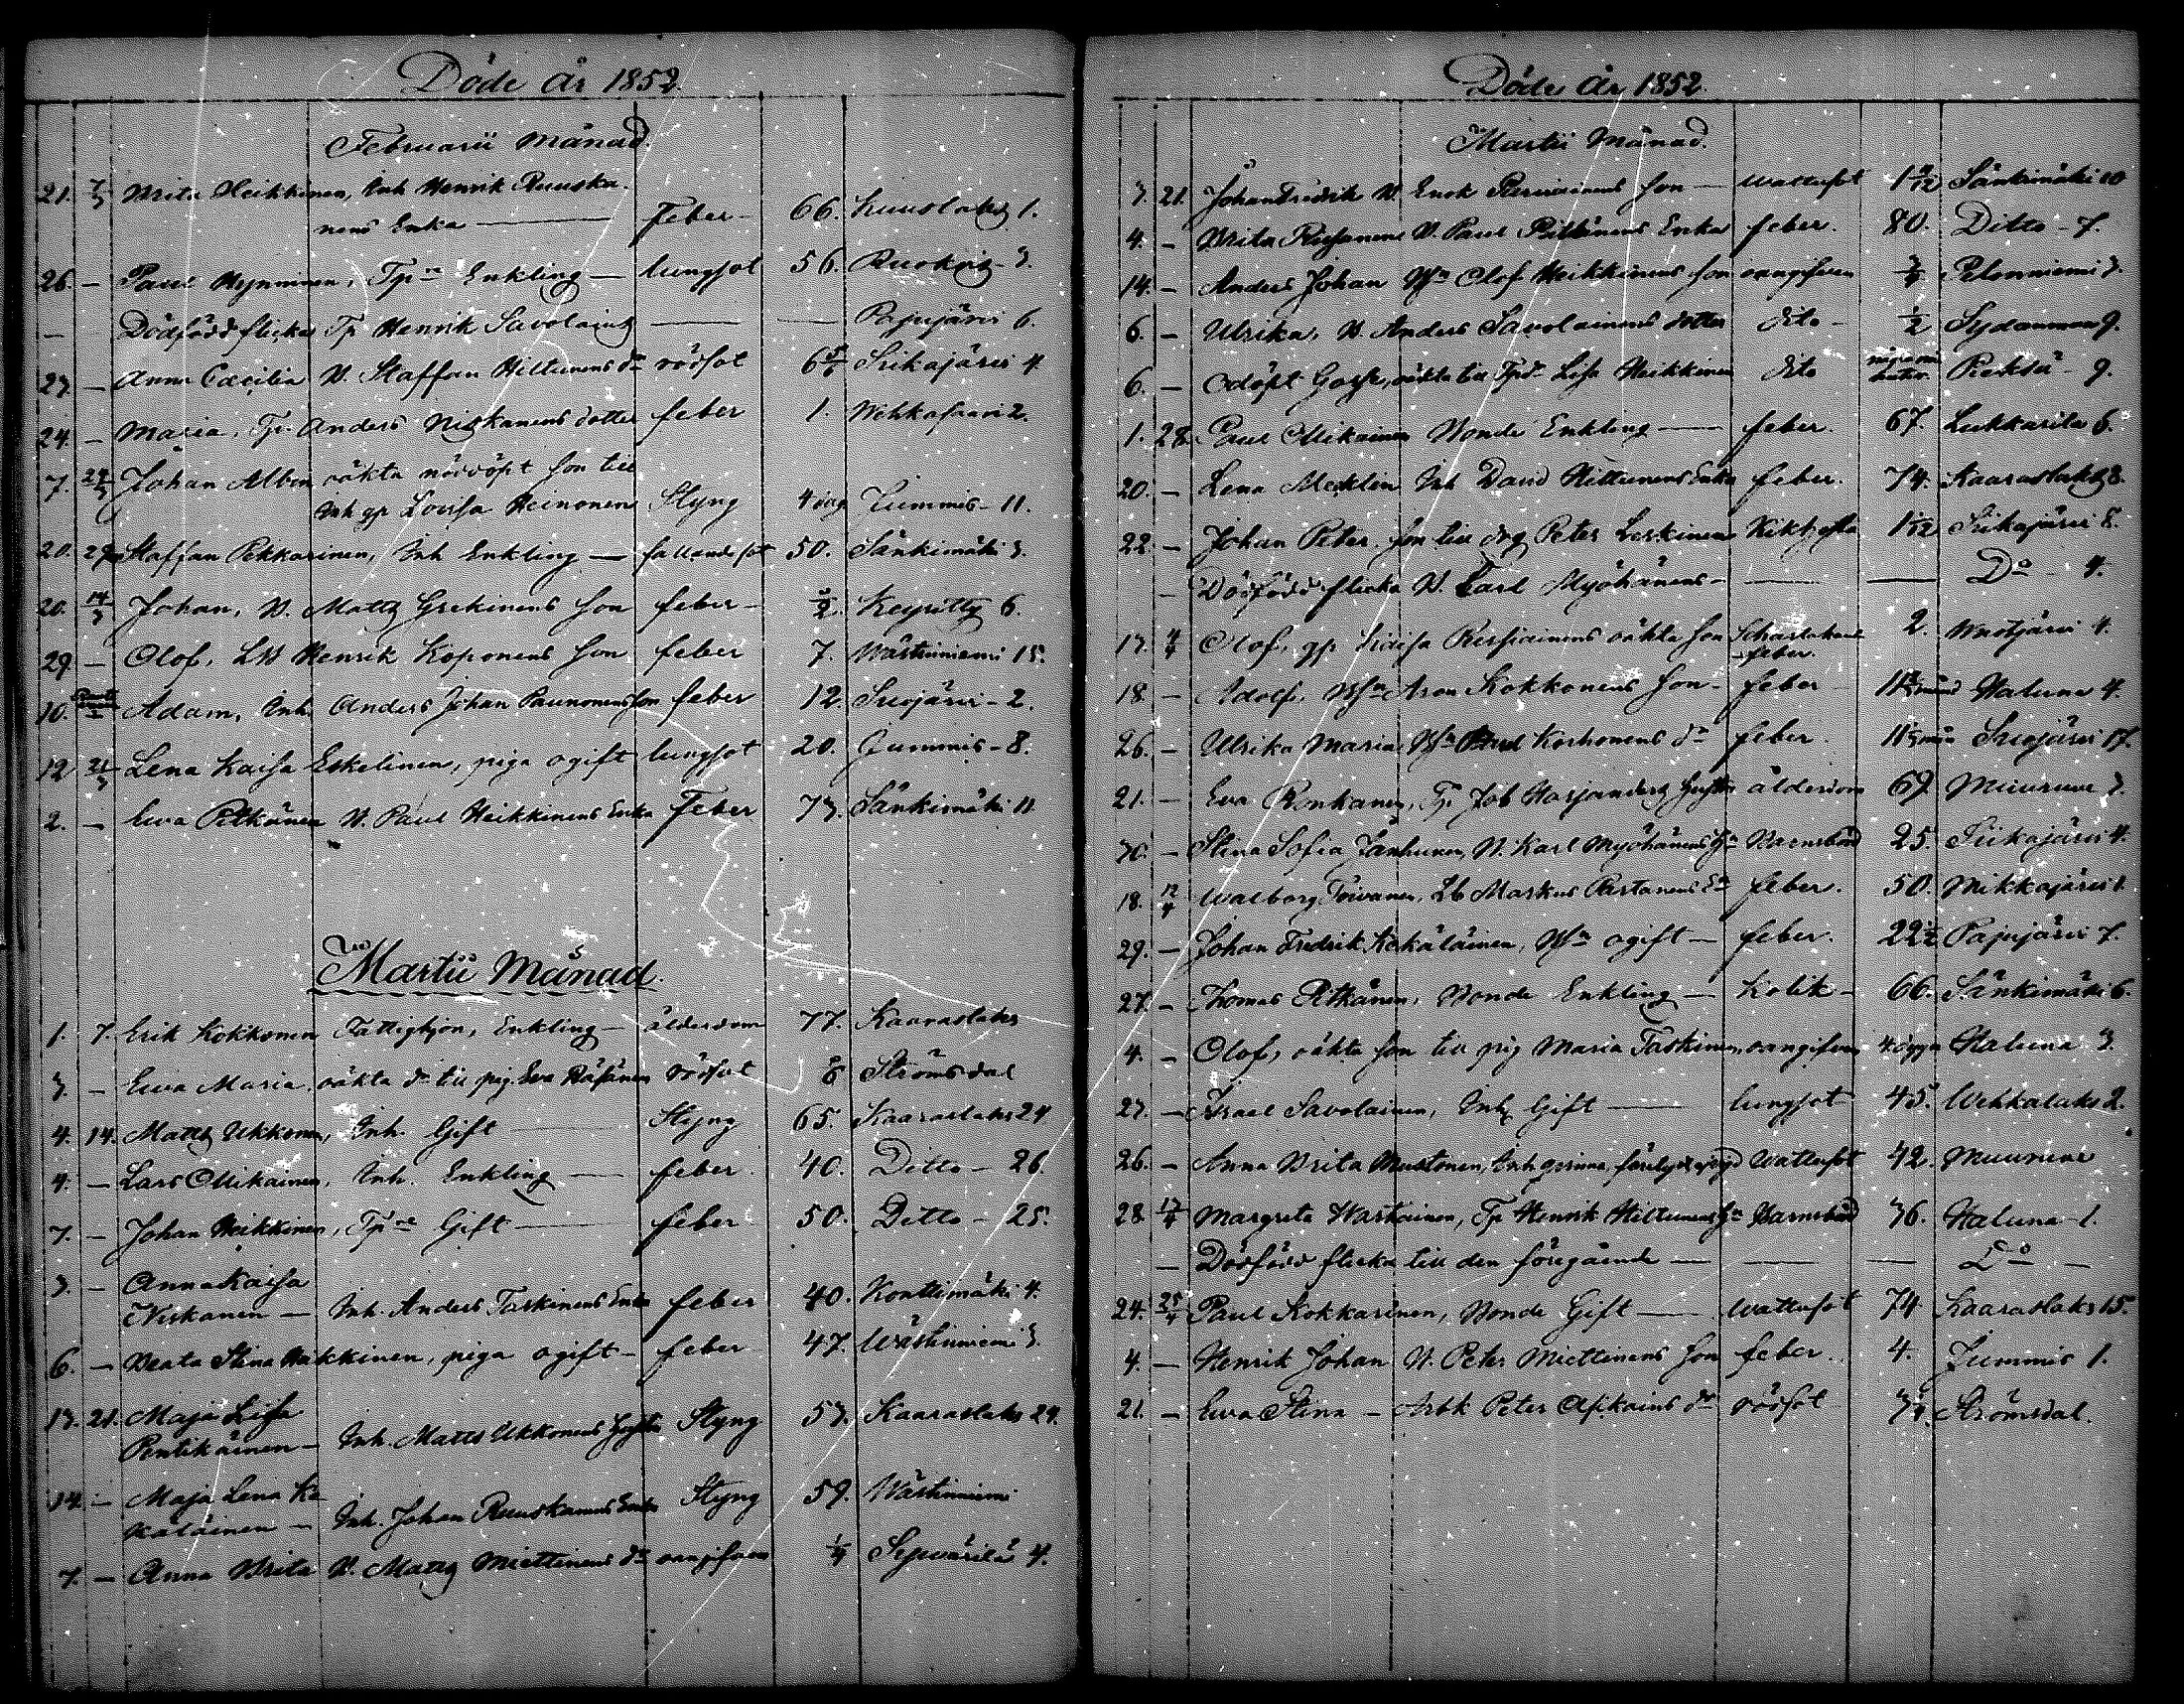 Döde År 1852.
Februarii Månad.
21. 7/3 Brita Heikkinen, Inh Henrik Ruuska-
nens Enka — Feber — 66. Luuslax 1.
26. — Paul Hynninen, Tp Enkling — lungsot 56. 3.
— Dödfödd flicka Tp Henrik Savolains — — Papujärvi 6.
27. — Anna Cæcilia B. Staffan Hiltunens dr rödsot Siikajärvi 4
24. — Maria, Tp. Anders Niskanens dotter feber 1. Wehkasaari 2.
7. Johan Albin oäkta nöddöpt son till
Inh gp Lovisa Heinonen Styng 4 dag Jummis - 11.
20. Staffan Pekkarinen, Inh Enkling — fallandesot 50. Sänkimäki 3.
20. 14/3 Johan, B. Matts son feber - Keyritty 6.
29 — Olof, Henrik Koponens son feber 7. Wästinniemi 15.
10. Adam, Inh. Anders Johan Paunonens son feber 12. Suojärvi - 2.
12 21/3 Lena Kaisa Eskelinen, piga ogift lungsot 20. Jummis - 8.
2. — Ewa Pitkänen B. Paul Heikkinens Enka Feber 73. Sänkimäki 11
Martii Månad.
1. 7. Erik Kokkonen Fattighjon, Enkling — ålderdom 77. Kaaraslaks
3. — Ewa Maria, oäkta dr till pig. Eva Räsänen rödsot 8 Strömsdal
4. 14. Matts Ukkonen, Inh. Gift — Styng 65. Kaaraslaks 24
4. — Lars Mikainen, Inh. Enkling — feber. 40. Ditto - 26.
7. — Johan Heikkinen, Tp Gift — feber 50. Ditto - 25.
3. — Anna Kaisa
Niskanen — Inh. Anders Taskinens Enka feber 40. Konttimäki 4.
6. — Beata Stina Heikkinen, piga ogift — feber 47. Wästinniemi 3.
13. 21. Maja Lisa
Pentikäinen — Inh. Matts Ukkonens Hustru Styng 53. Kaaraslaks 24.
14. — Maja Lena Ke-
käläinen — Inh. Johan Ruuskanens Enka Styng 59. Wästinniemi
7. — Anna Brita B. Matts Miettinens dr oangifven 1/4 Syvärilä 4.
Döde År 1852.
Martii Månad.
3. 21. Johan Fredrik B. Enok son — wattusot Sänkimäki 10
4. — Brita B. Paul Pitkänens Enka feber. 80. Ditto - 7.
14. — Anders Johan Olof Heikkinens son oangifven Pelonniemi 3.
6. — Ulrika, B. Anders Savolainens dotter dito - 1/2 Sydanmaa 9.
6. — Odöpt Gosse, oäkta till Lisa Heikkinen dito några minuter 9.
1. 28. Paul Mikainen Bonde Enkling — feber. 67. Lukkarila 6.
20. — Lena Mecklin Inh David Hiltunens Enka feber. 74. Kaaraslaks 8.
22. — Johan Peter. son till drg Peter Leskinen Kikhosta Siikajärvi 8.
— Dödfödd flicka B. Carl Myöhänens — — — Do - 4.
17. Olof, gp Kaisa oäkta son Scharlakans
feber. 2. 4.
18. — Adolf, Aron Kokkonens son — feber Haluna 4.
26. — Ulrika Maria Korhonens dr feber. Suojärvi 17.
21. — Eva Ronkanen, Tp Job Harjanders Hustru ålderdom 69. Muuruve 3.
30. — Stina Sofia Janhunen, B. Karl Myöhänens Barnsbörd 25. Siikajärvi 4.
18. 12/4 Walborg Toivanen, Lb Markus Partanens feber. 50. Mikkajärvi 1.
29. — Johan Fredrik Kekäläinen, ogift — feber. Papujärvi 7.
27. — Thomas Pitkänen, Bonde Enkling — Kolik — 66. Sänkimäki 6.
4. — Olof, oäkta son till pig Maria Taskinen, oangifven Haluna 3.
27. — Israel Savolainen, Inh Gift — lungsot 45. Wehkalaks 2.
26. — Anna Brita Mustonen, Inh qvinna wattusot 42. Muuruve
28 Margreta Hartikainen, Tp Henrik Hiltunens Barnsbörd 36. Haluna - 1.
— Dödfödd flicka till den föregående — — — Do —
24. 25/4 Paul Kokkarinen, Bonde Gift — wattusot 74. Kaaraslaks 15.
4. — Henrik Johan B. Peter Miettinens son feber. 4. Jummis 1.
21. — Ewa Stina — Arbk Peter dr rödsot Strömsdal.